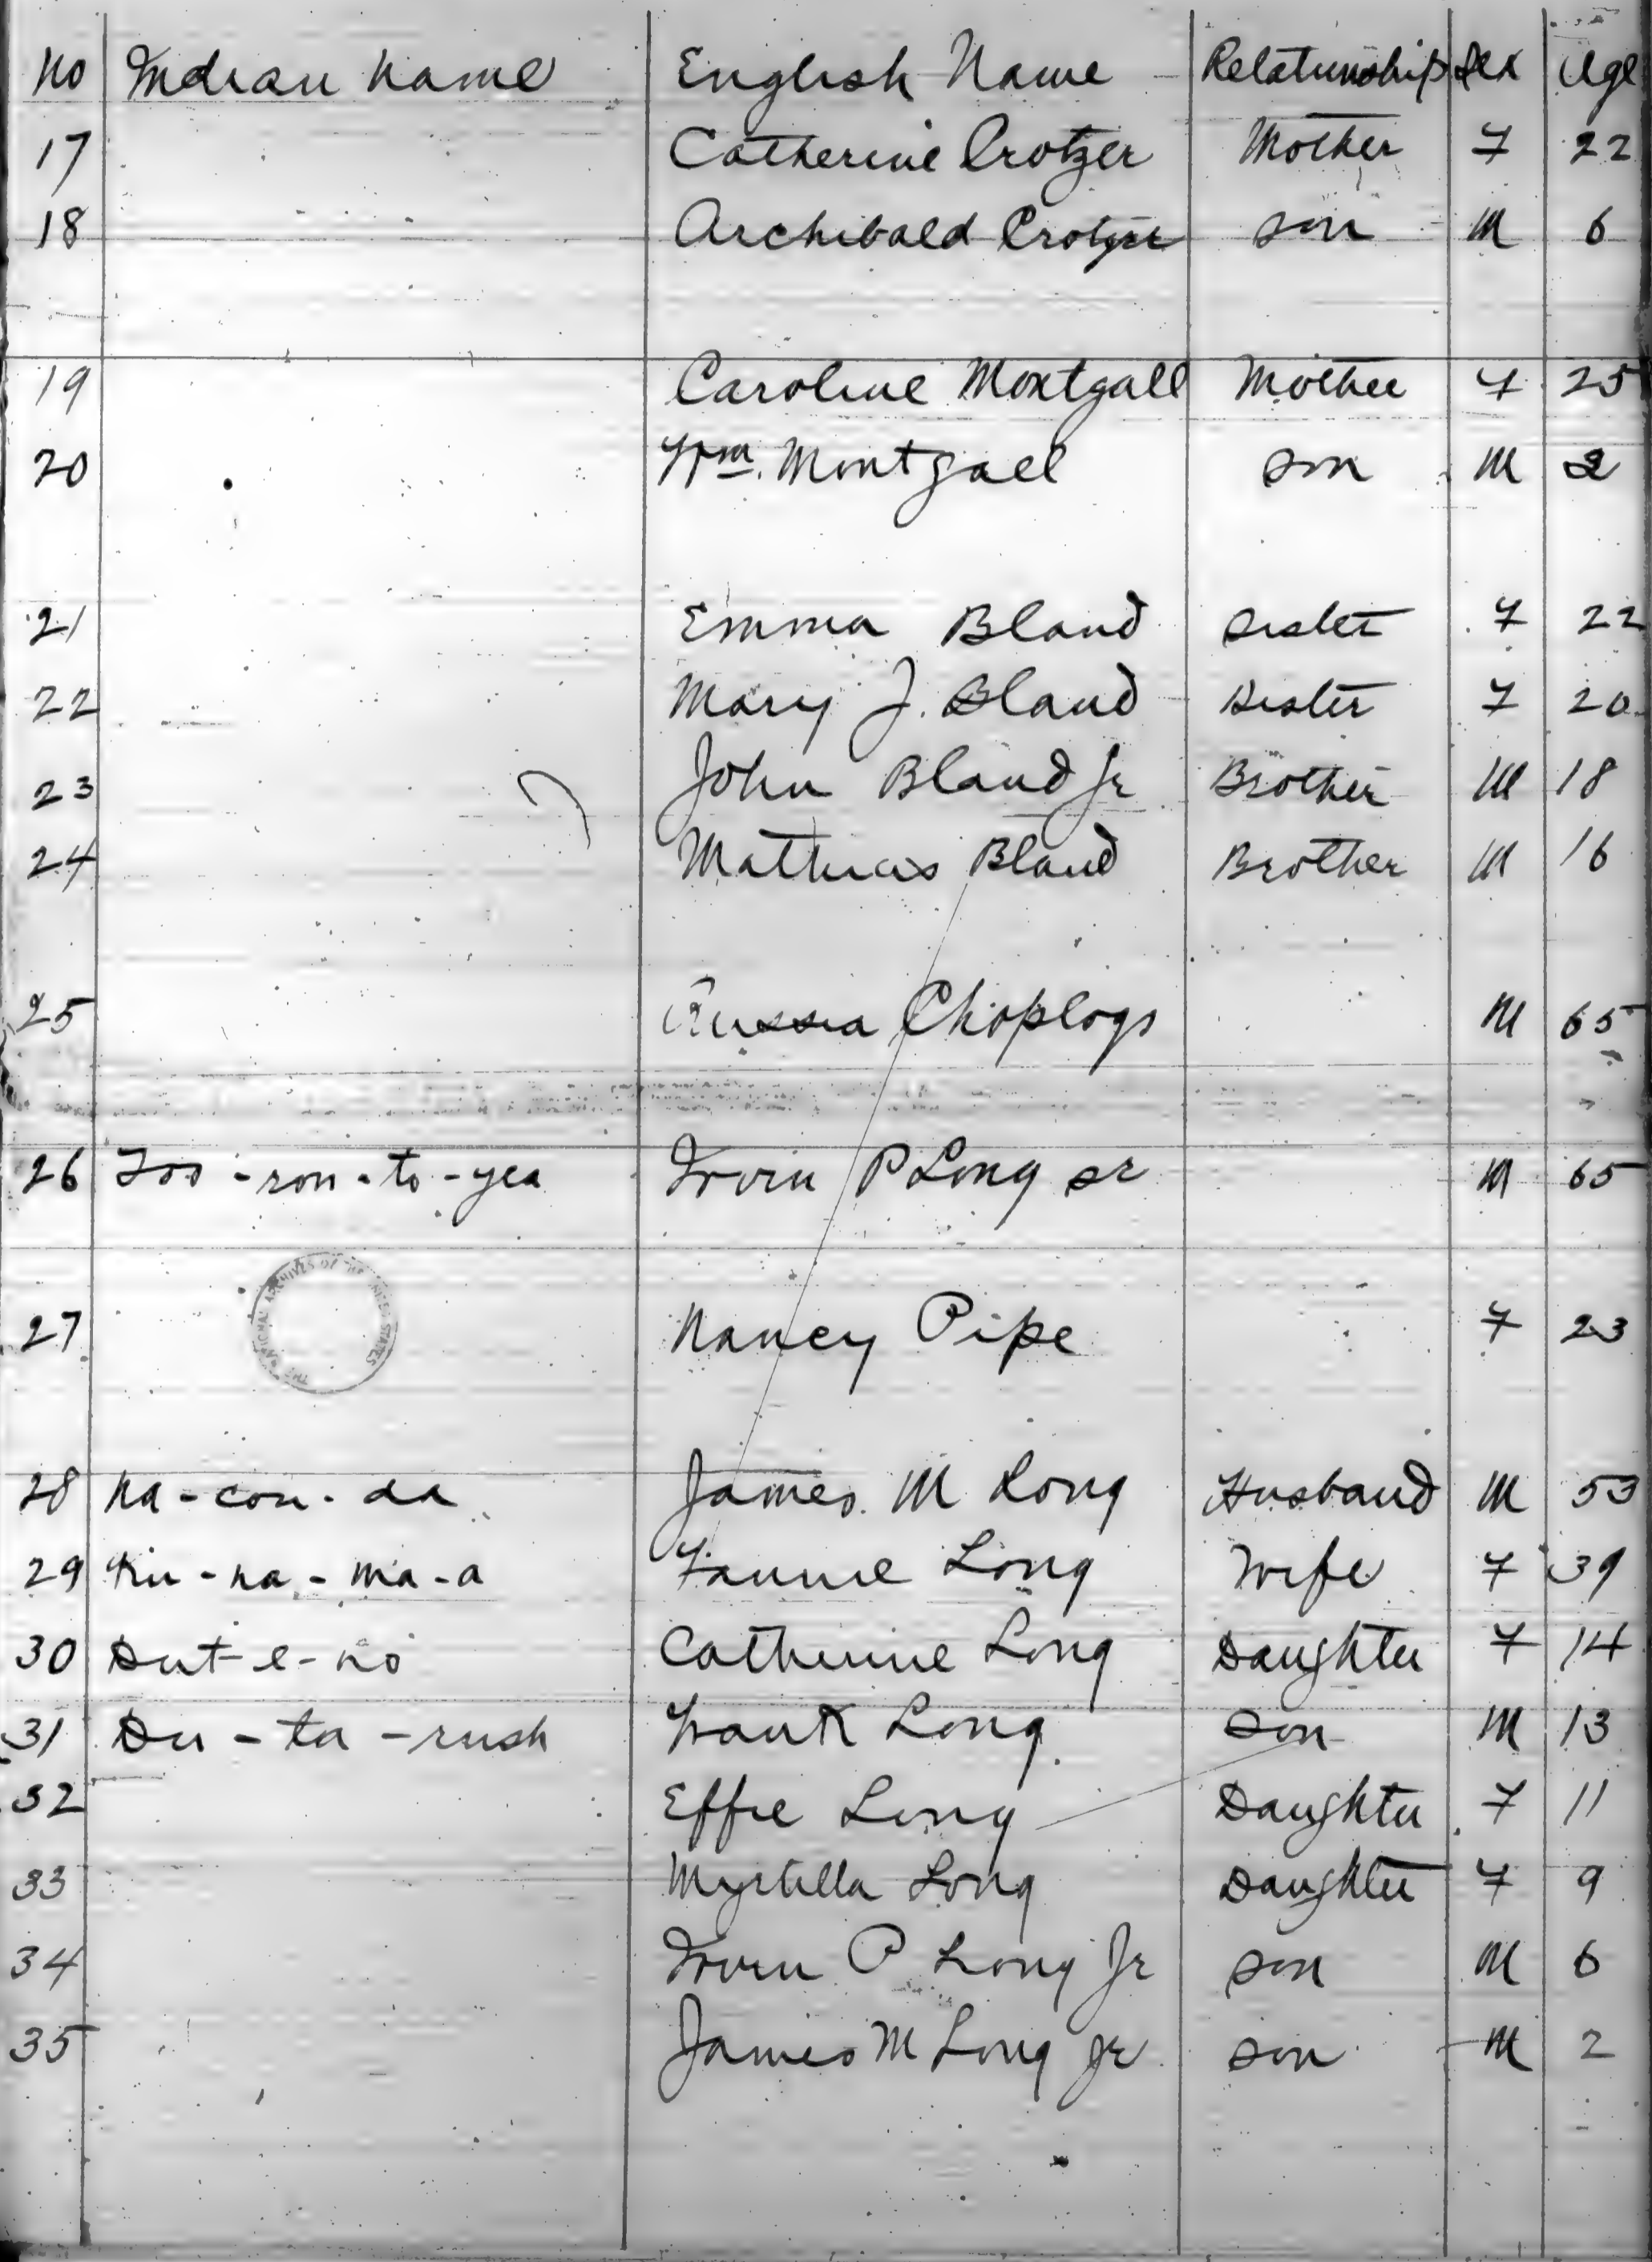 No Indian Name English Name Relationship Sex Age
17 Catherine Crotzer Mother F 22
18 Archibald Crotzer Son M 6
19 Caroline Montgall Mother F 25
20 Wm. Montgall Son M 2
21 Emma Bland Sister F 22
22 Mary J. Bland Sister F 20
23 John Bland Jr Brother M 18
24 Mathias Bland Brother M 16
25 Russia Choplogs M 65
26 Too-ron-to-yea Irvin P Long Sr M 65
THE NATIONAL ARCHIVES OF THE UNITED STATES
27 Nancy Pipe F 23
28 Na-con-da James M Long Husband M 53
29 -na-ma-a Fannie Long Wife F 39
30 Catherine Long Daughter F 14
31 Du-ta-rush Frank Long Son M 13
32 Effie Long Daughter F 11
33 Myrtilla Long Daughter F 9
34 Irvin P Long Jr Son M 6
35 James M Long Jr Son M 2